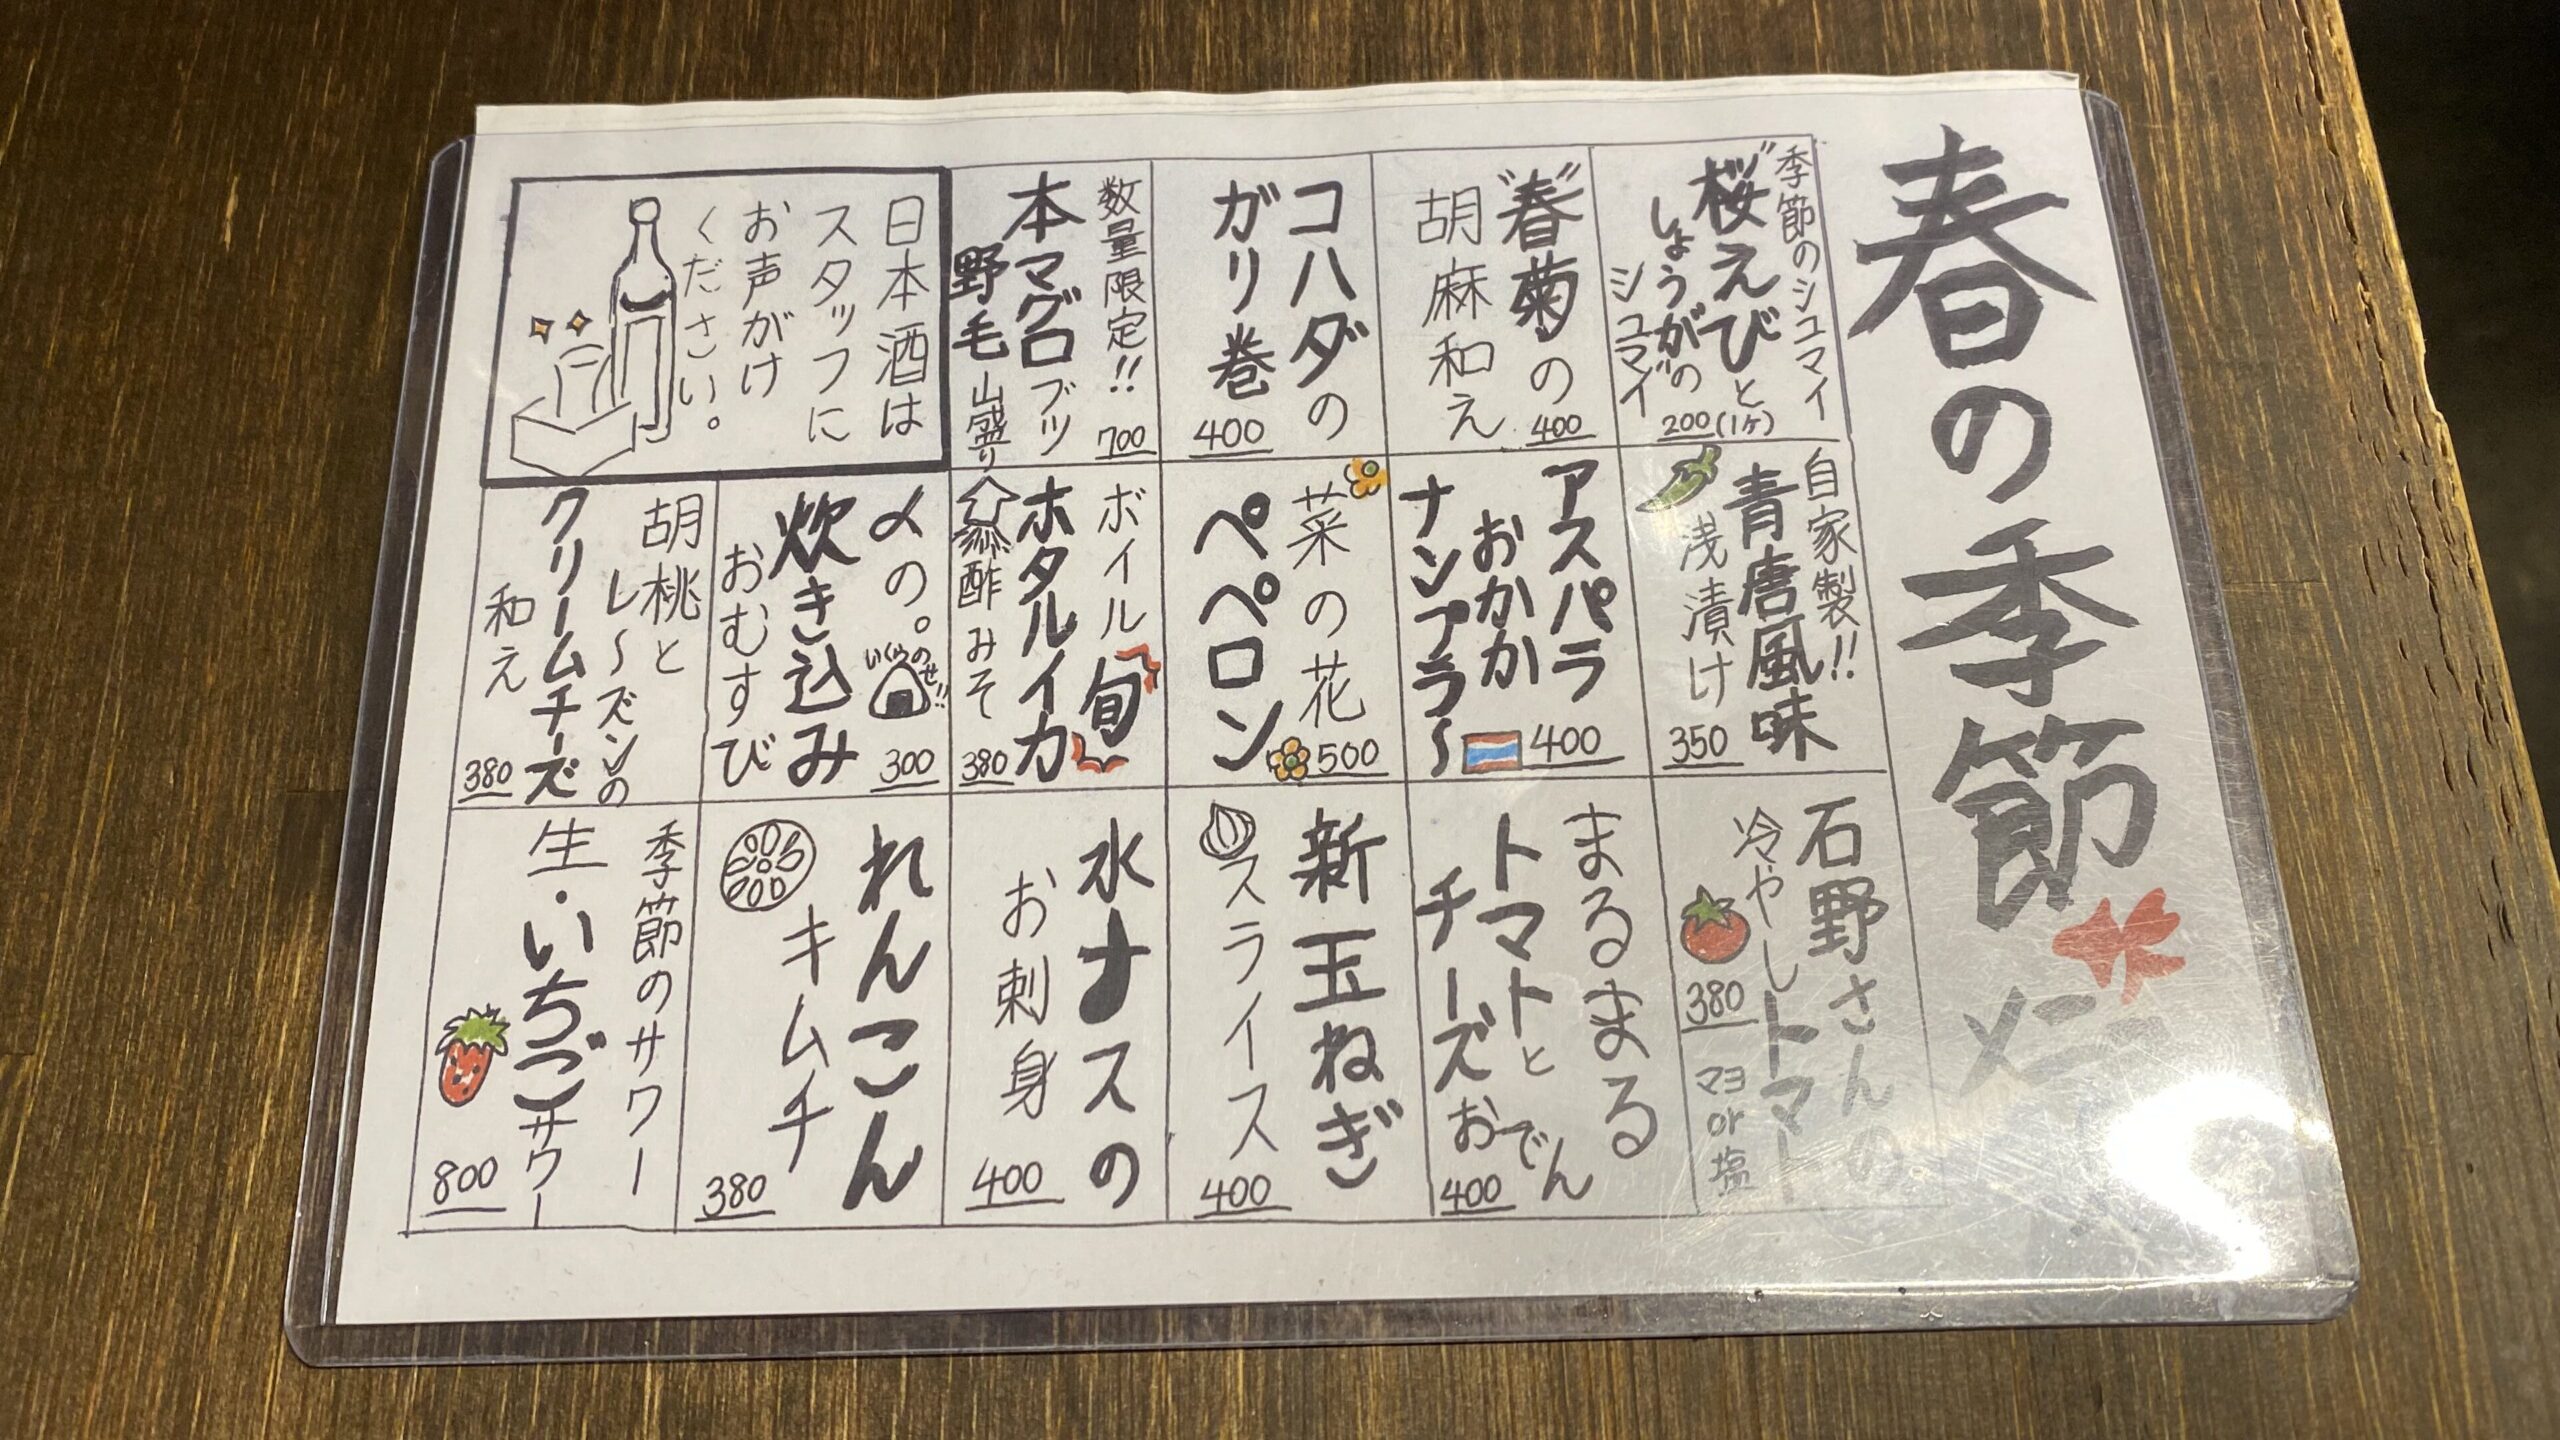 春の季節メニュー
季節のシュウマイ
桜えびと
しょうがの
シュウマイ
200(1ヶ)
春菊の
胡麻和え
400
コハダの
ガリ巻
400
数量限定!!
本マグロブツ
野毛山盛り
700
日本酒は
スタッフに
お声がけ
ください。
自家製!!
青唐風味
浅漬け
350
アスパラ
おかか
ナンプラ〜
400
菜の花
ペペロン
500
ボイル
旬
ホタルイカ
酢みそ
380
〆の。
いくらのせ!!
炊き込み
おむすび
300
胡桃と
レ〜ズンの
クリームチーズ
和え
380
石野さんの
冷やしトマト
380
マヨor塩
まるまる
トマトと
チーズおでん
400
新玉ねぎ
スライス
400
水ナスの
お刺身
400
れんこん
キムチ
380
季節のサワー
生・いちごサワー
800